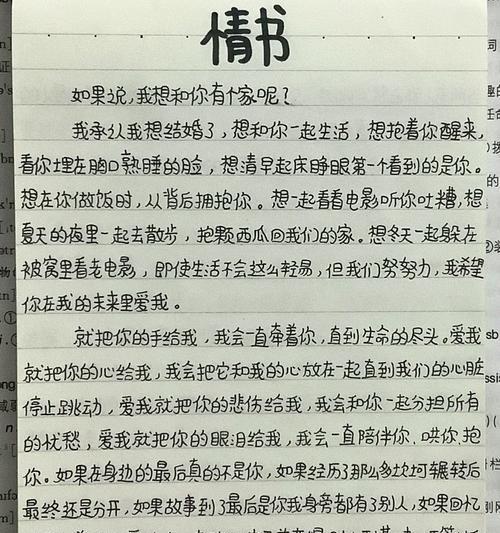 情书
如果说,我想和你有个家呢?
我承认我想结婚了,想和你一起生活,想抱着你醒来,
看你埋在胸口熟睡的脸,想清早起床睁眼第一个看到的是你。
想在你做饭时,从背后拥抱你。想一起看看电影听你吐糟,想
夏天的夜里一起去散步,抱颗西瓜回我们的家。想冬天一起躲在
被窝里看老电影,即使生活不会这么轻易,但我们努努力,我希望
你在我的未来里爱我。
就把你的手给我,我会一直牵着你,直到生命的尽头。爱我
就把你的心给我,我会把它和我的心放在一起直到我们的心脏
停止跳动,爱我就把你的悲伤给我,我会和你一起分担所有
的忧愁,爱我就把你的眼泪给我,我会一直陪伴你、哄你、抱
你。如果在身边的最后真的不是你,如果经历了那么多坎坷辗转后
最终还是分开,如果故事到了最后是你我身旁都有了别人,如果回忆